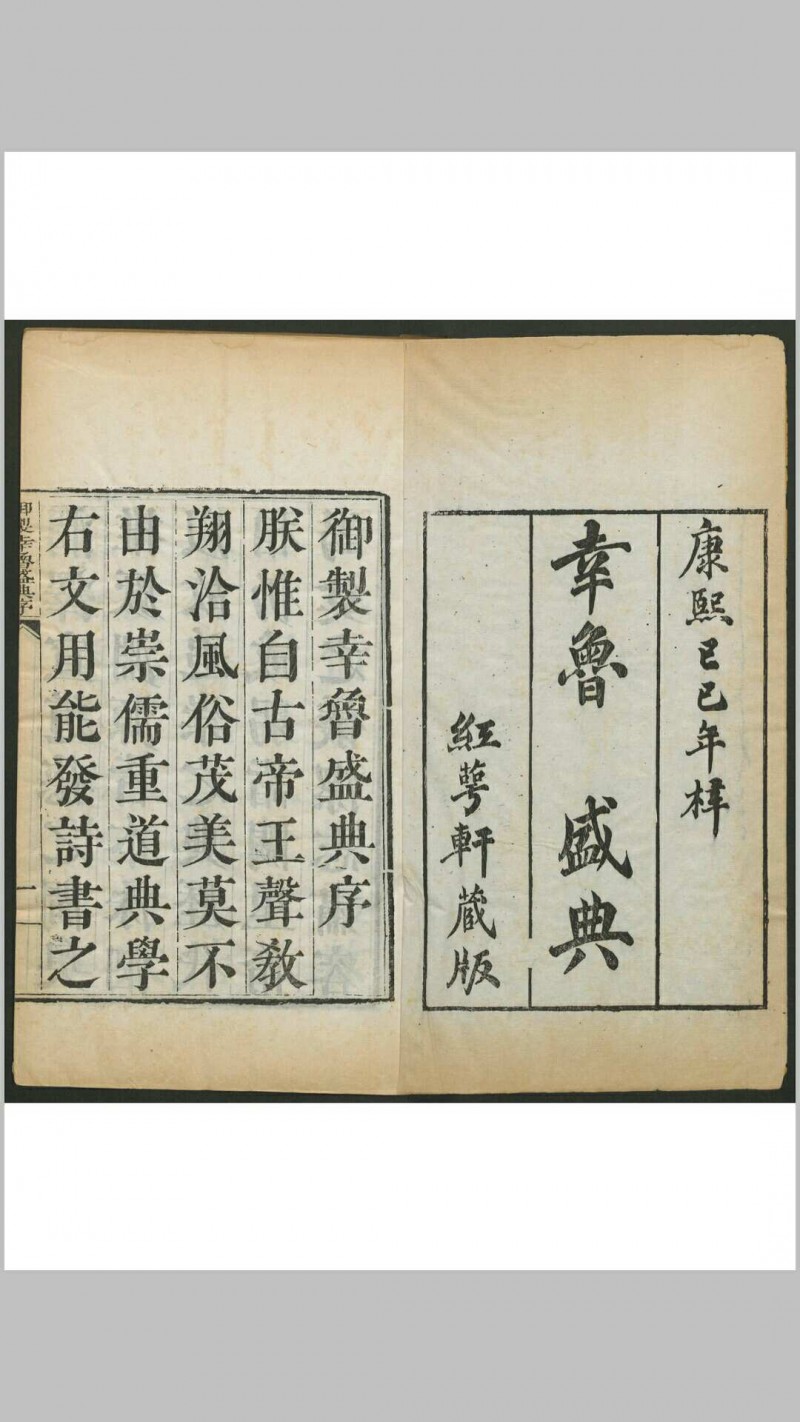 康熙己巳年梓
幸魯盛典
紅萼軒藏版
御製幸魯盛典序
朕惟自古帝王聲教
翔洽風俗茂美莫不
由於崇儒重道典學
右文用能發詩書之
御製幸魯盛典序
一